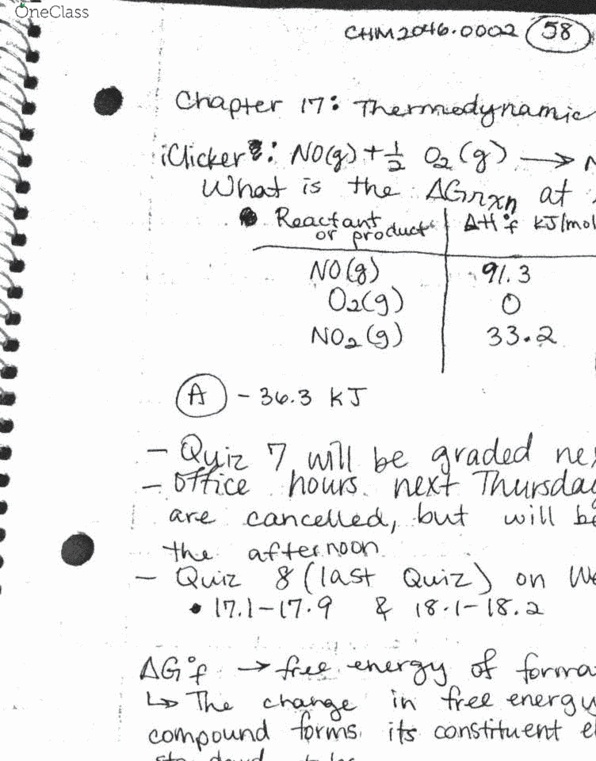 OneClass
CHM2046.0002 58
Chapter 17: Thermodynamic
iClicker: NO(g) + 1/2 O2(g) →
What is the ΔGrxn at
Reactant or product ΔH°f kJ/mol
NO(g) 91.3
O2(g) 0
NO2(g) 33.2
A -36.3 kJ
- Quiz 7 will be graded
- Office hours next Thursday
are cancelled, but will be
the afternoon
- Quiz 8 (last Quiz) on We
• 17.1-17.9 & 18.1-18.2
ΔG°f → free energy of forma
↳ The change in free energy
compound forms its constituent